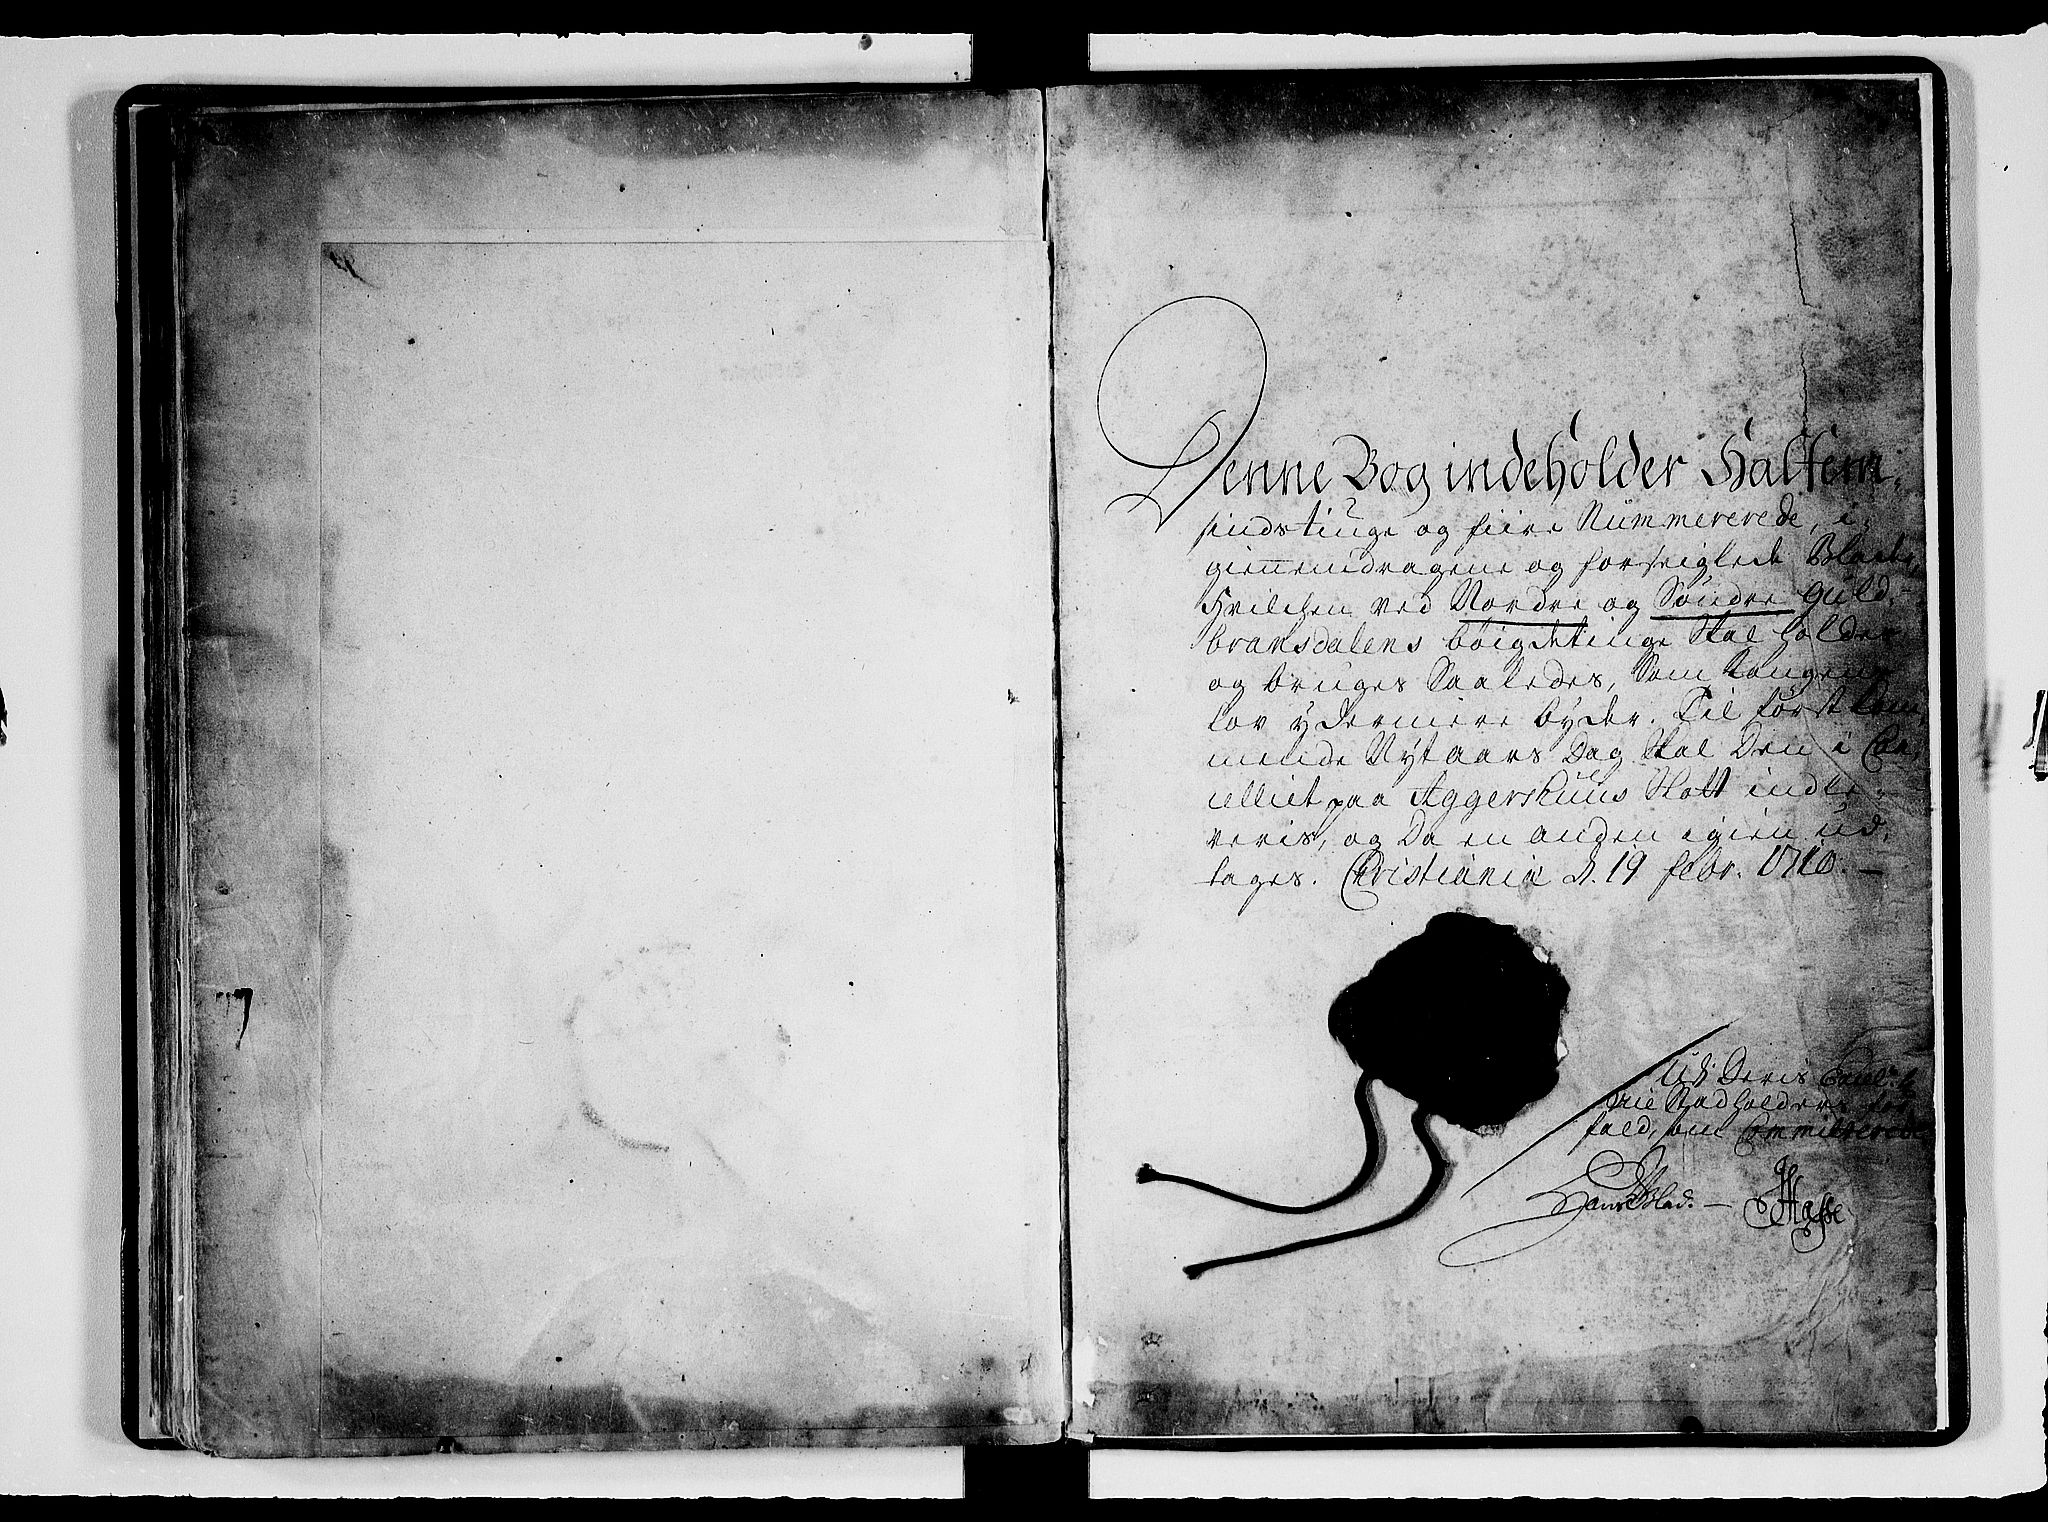 Denne Bog indeholder Halfem,
sindstiuge og fiire Nummererede, i,
giennemdragene og forseiglede Blade,
Hvilchen ved Nordre og Söndre Guld,
bransdalens böigdetinge skal holdes
og bruges Saaledes, Som Kongens
lov ydermere byder. Til förstkom,
mende Nytaars Dag skal Den i Can,
celliet paa Aggershuus Slott indle,
veris, og Da en anden igien ud,
tages. Christiania d. 19 febr. 1710.
Udi Deris
Stadholders for,
fald, som Committerede
Hans Blad. — Hasse